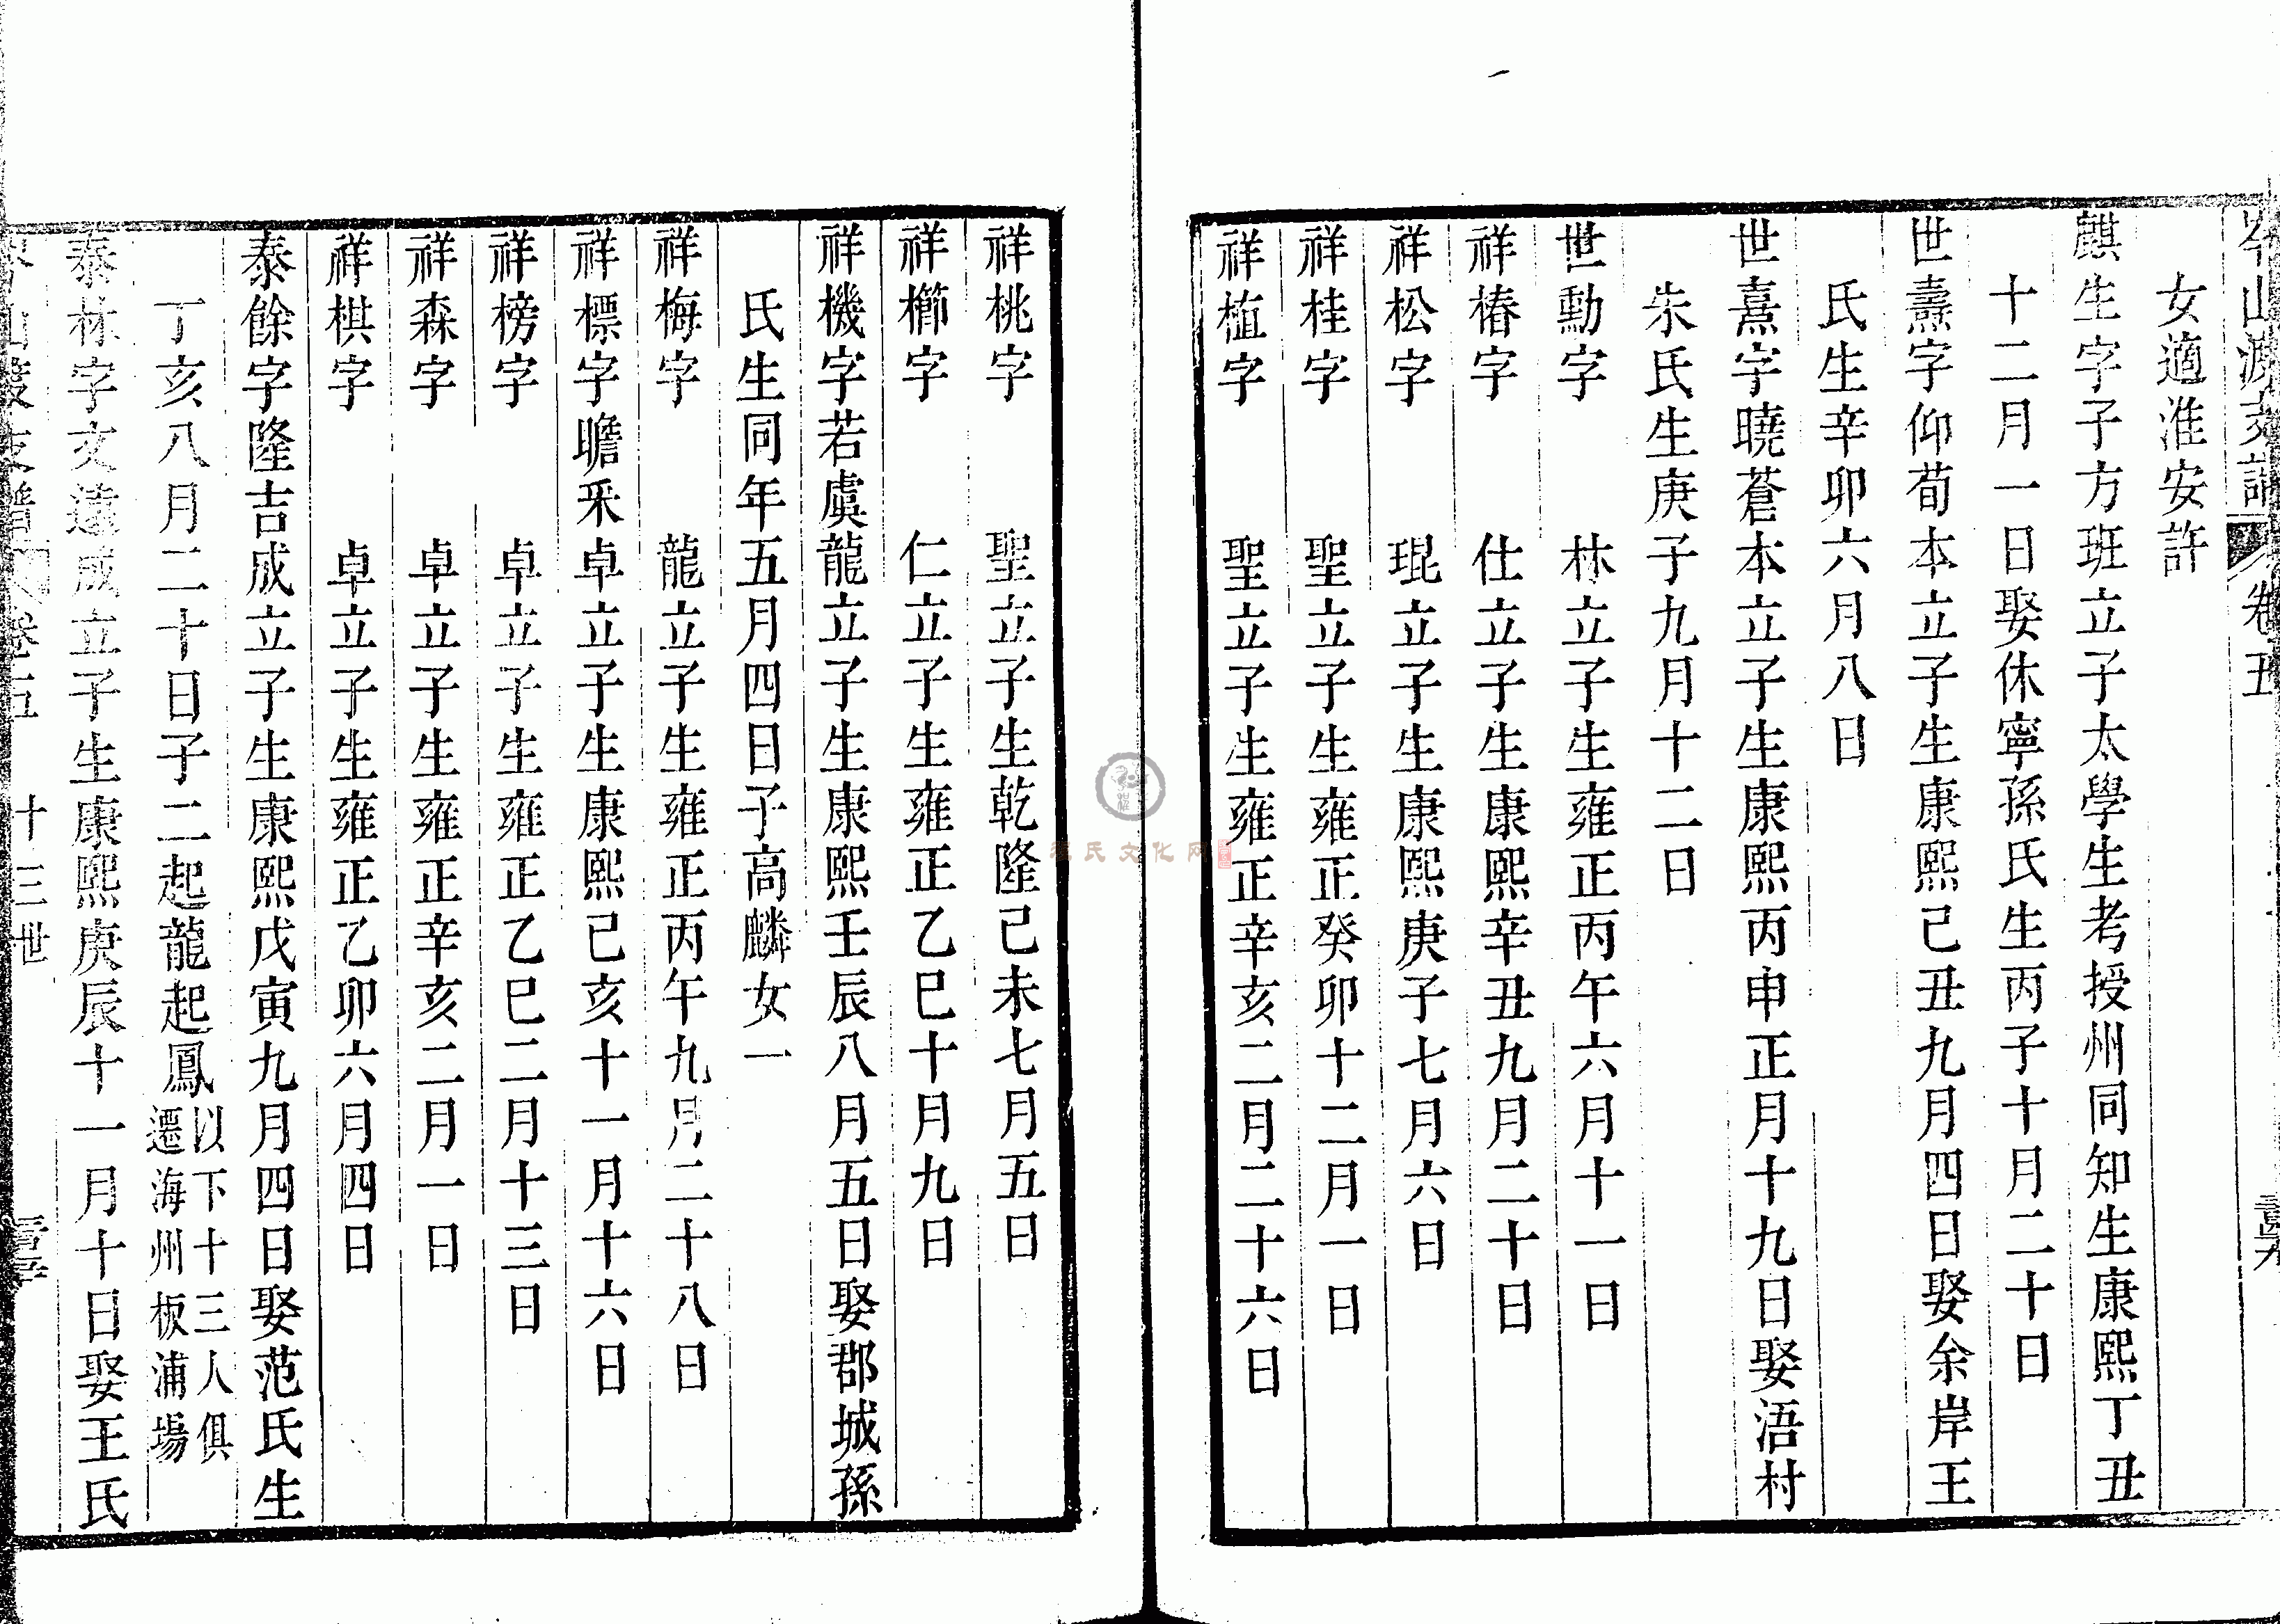 岑山渡支譜 卷五
女適淮安許
麒生字子方班立子太學生考授州同知生康熙丁丑
十二月一日娶休寧孫氏生丙子十月二十日
世燾字仰荀本立子生康熙己丑九月四日娶余岸王
氏生辛卯六月八日
世熹字曉蒼本立子生康熙丙申正月十九日娶浯村
朱氏生庚子九月十二日
世勳字 林立子生雍正丙午六月十一日
祥椿字 仕立子生康熙辛丑九月二十日
祥松字 琨立子生康熙庚子七月六日
祥桂字 聖立子生雍正癸卯十二月一日
祥植字 聖立子生雍正辛亥二月二十六日
祥桃字 聖立子生乾隆己未七月五日
祥櫛字 仁立子生雍正乙巳十月九日
祥機字若虞龍立子生康熙壬辰八月五日娶郡城孫
氏生同年五月四日子高麟女一
祥梅字 龍立子生雍正丙午九月二十八日
祥標字瞻采卓立子生康熙己亥十一月十六日
祥榜字 卓立子生雍正乙巳二月十三日
祥森字 卓立子生雍正辛亥二月一日
祥棋字 卓立子生雍正乙卯六月四日
泰餘字隆吉成立子生康熙戊寅九月四日娶范氏生
丁亥八月二十日子二起龍起鳳以下十三人俱
遷海州板浦場
泰林字文遠成立子生康熙庚辰十一月十日娶王氏
岑山渡支譜 卷五 十三世
氏文化网